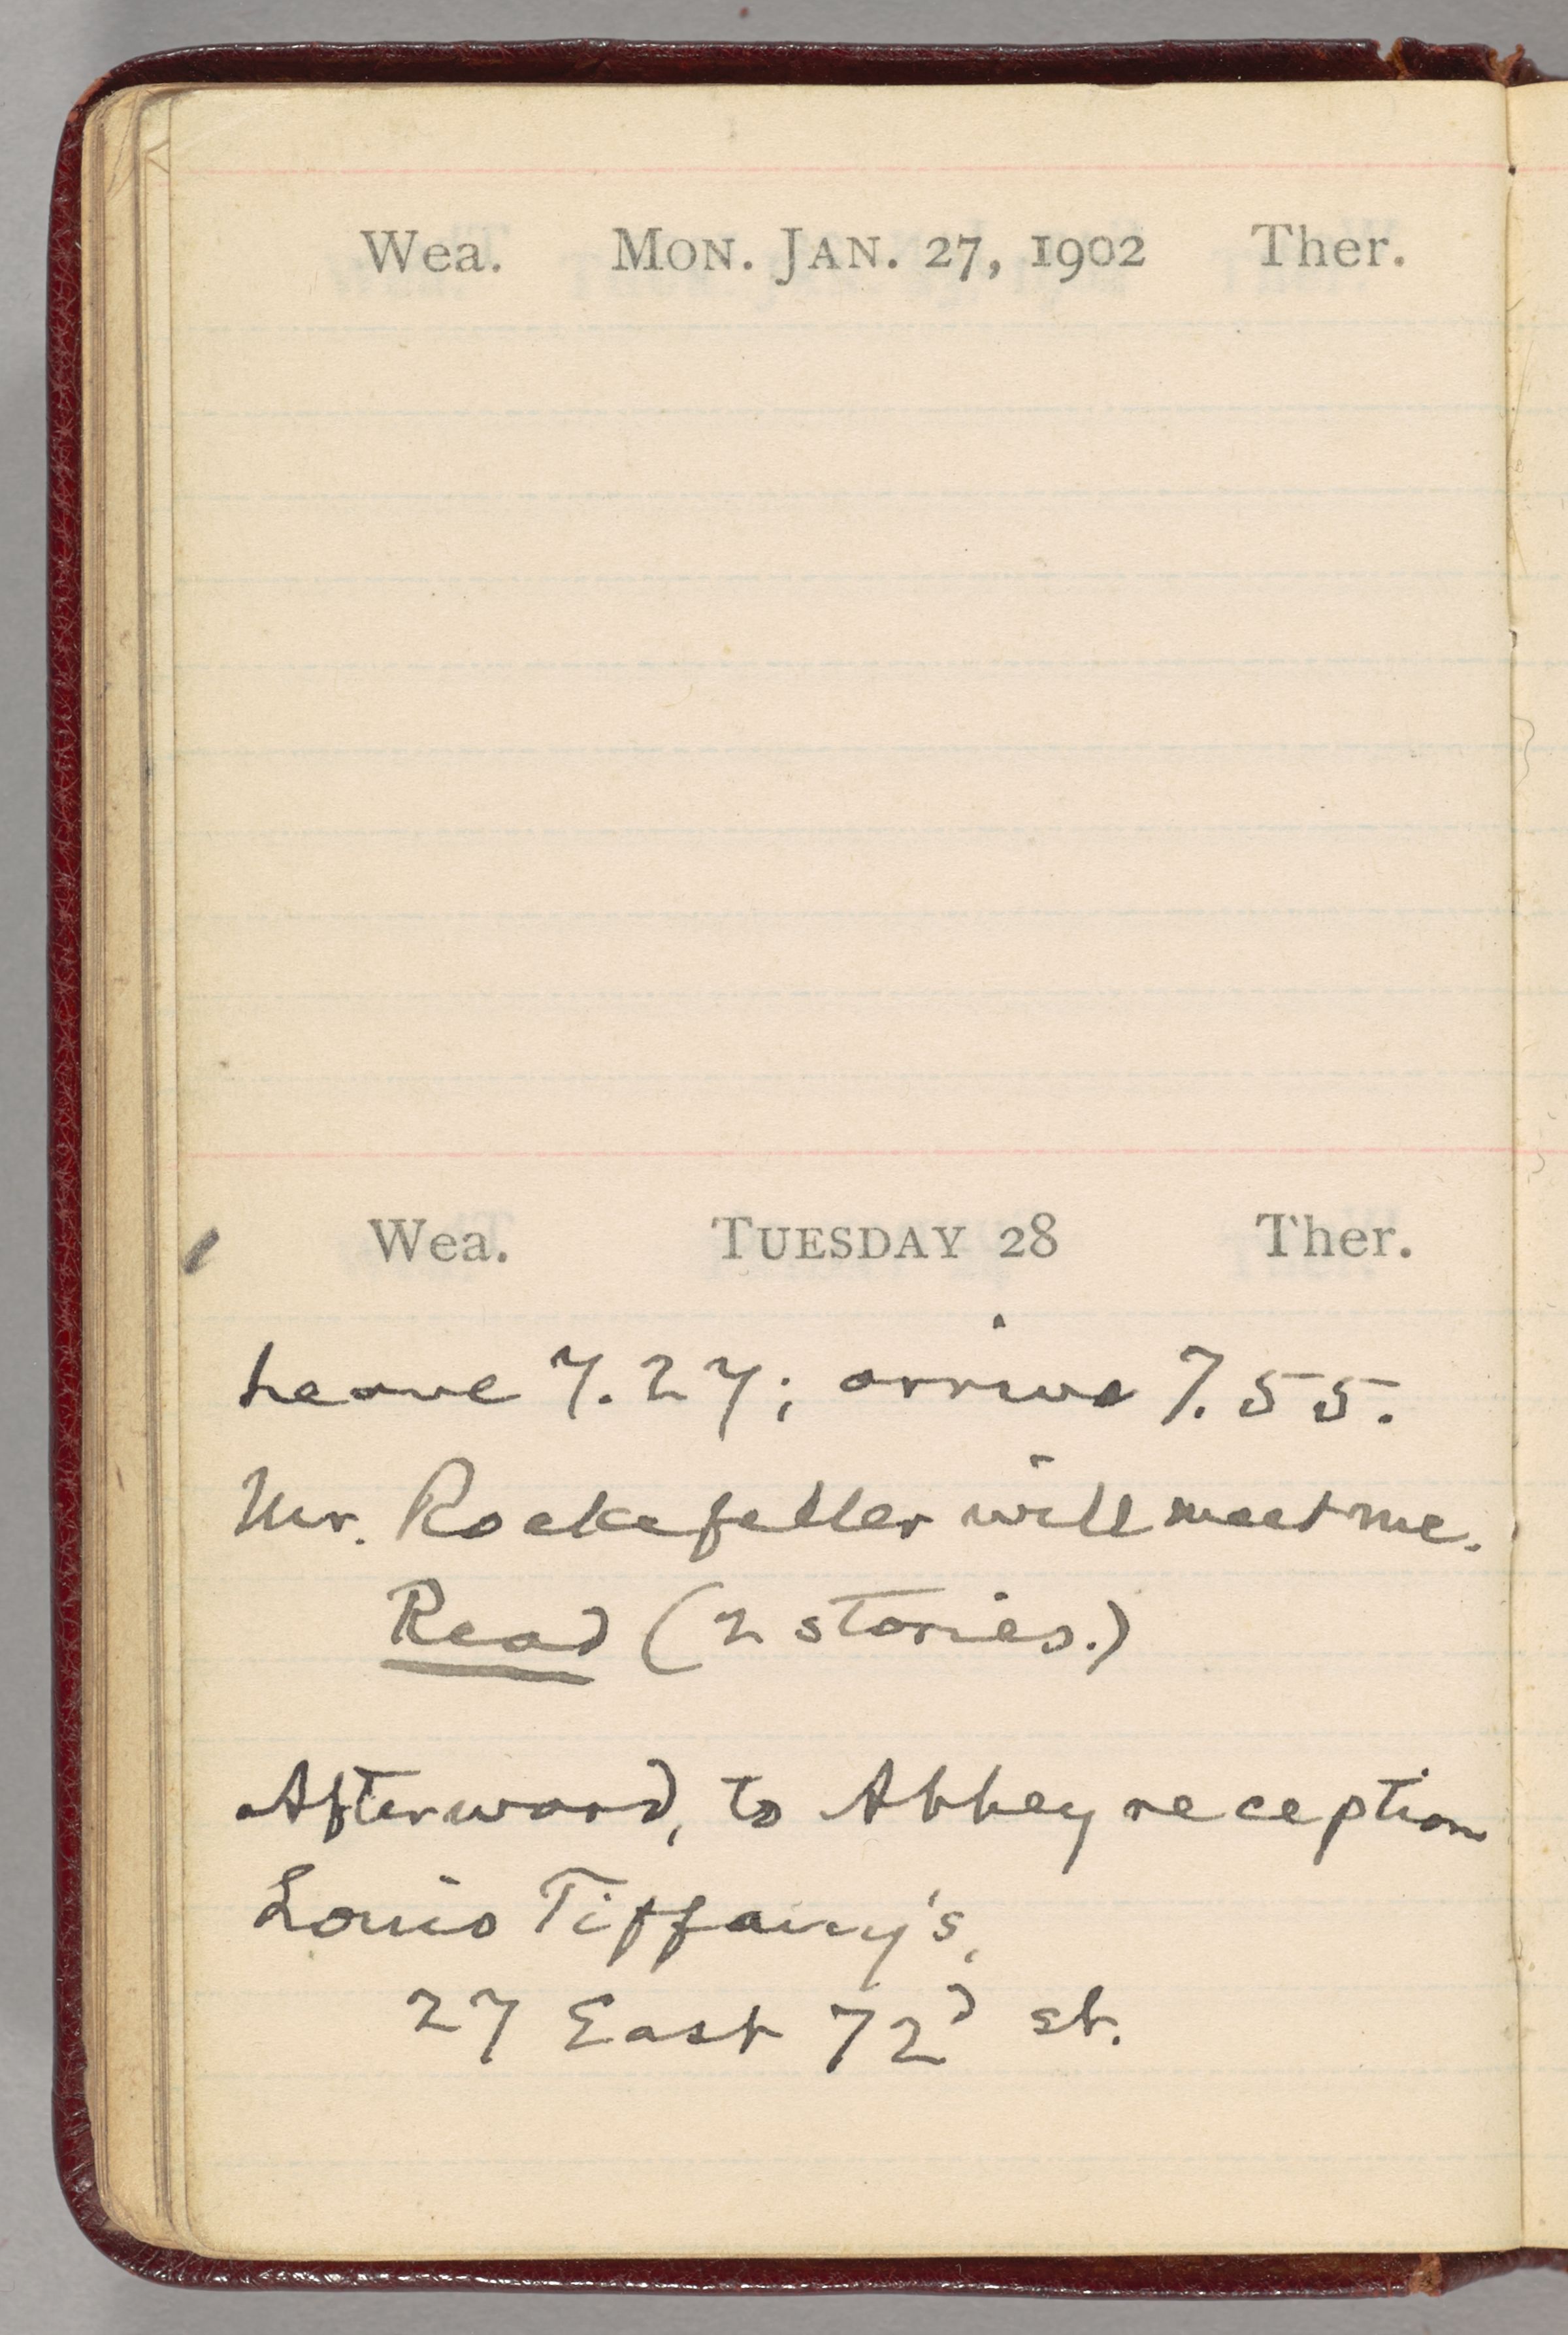 Wea. MON. JAN. 27, 1902 Ther.
Wea. TUESDAY 28 Ther.
Leave 7.27; arrive 7.55.
Mr. Rockefeller will meet me.
Read (2 stories.)
Afterward, to Abbey reception
Louis Tiffany's,
27 East 72d st.